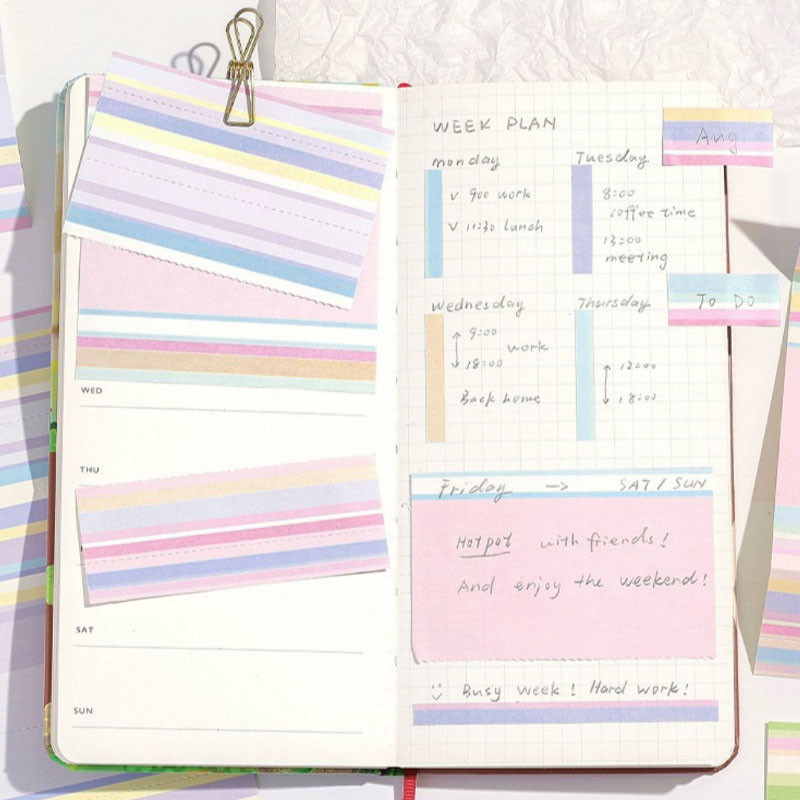 WED
THU
SAT
SUN
WEEK PLAN
Aug
monday
v 9:00 work
v 11:30 lunch
Tuesday
8:00
coffee time
13:00
meeting
To Do
Wednesday
9:00
work
18:00
Back home
Thursday
12:00
18:00
Friday -> SAT / SUN
Hotpot with friends!
And enjoy the weekend!
Busy week! Hard work!